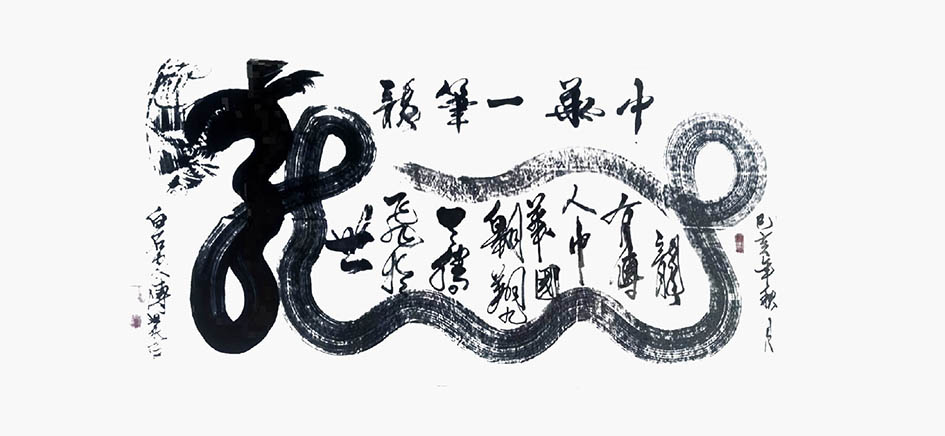 中華一筆龍
龍
龍
有傳
人中
華國
翱翔九
天騰
飛於
世
己亥年秋月